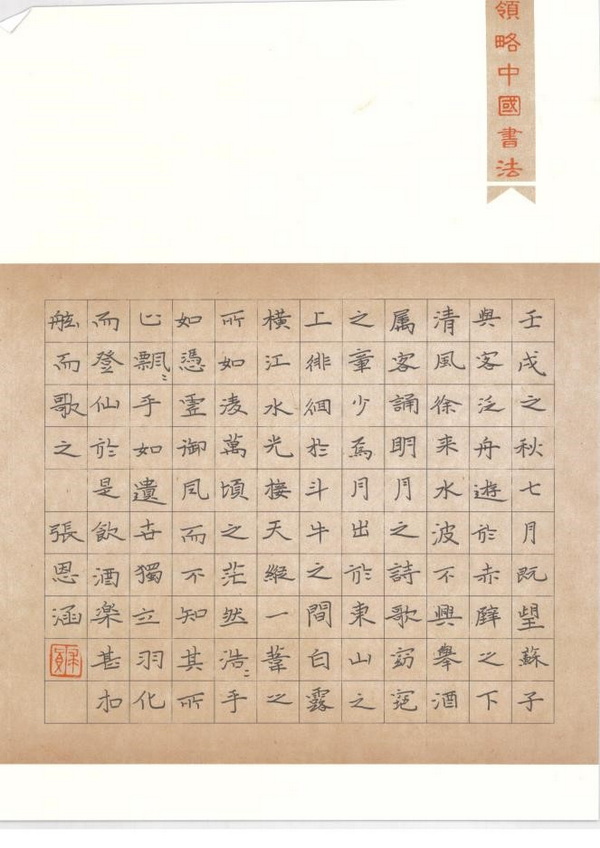 領略中國書法
壬戌之秋七月既望蘇子
與客泛舟遊於赤壁之下
清風徐來水波不興舉酒
属客誦明月之詩歌窈窕
之章少焉月出於東山之
上徘徊於斗牛之間白露
橫江水光接天縱一葦之
所如凌萬頃之茫然浩〻乎
如憑虛御風而不知其所
止飄〻乎如遺世獨立羽化
而登仙於是飲酒樂甚扣
舷而歌之 張恩涵